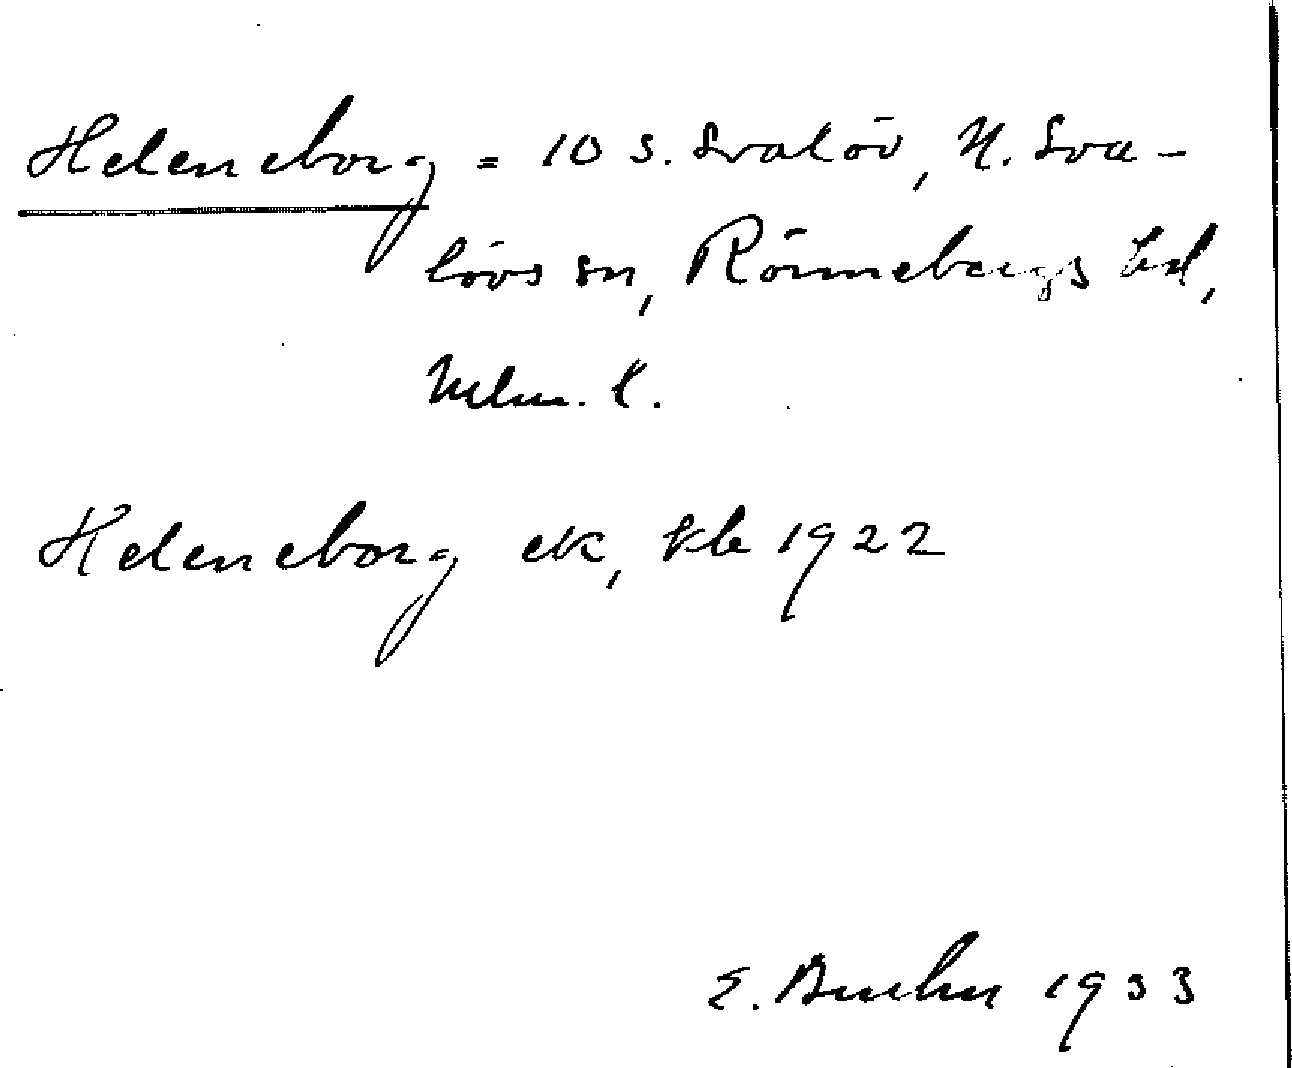 Heleneborg = 10 S. Svalöv, N. Sva-
lövs sn, Rönnebergs hd,
Mlm. l.
Heleneborg ek, kb 1922
E. Bruhn 1933